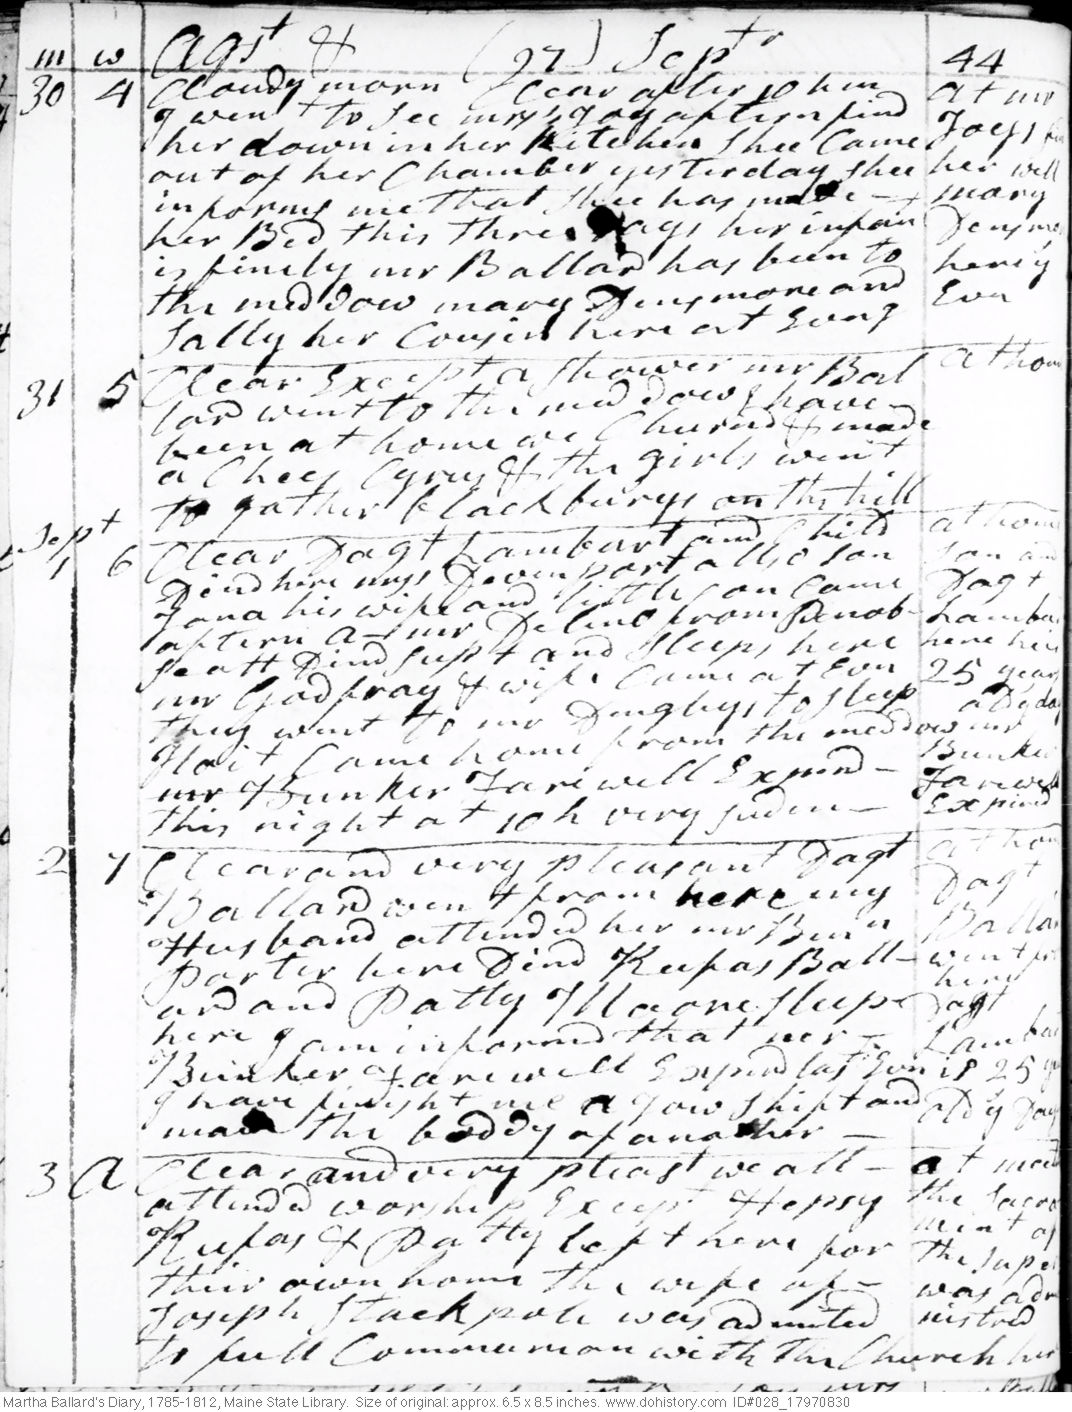 m w Agst & (97) Sept r 44
30 4 Cloudy morn Clear after 10 h m at mr
I went to See mrs Joy aftern find Joeys
her down in her Kitchen Shee Came her well
out of her Chamber yesterday Shee mary
informs me that Shee has made Densmo
her Bed this three Days her infant here y
is finely mr Ballard has been to Evn
the meddow mary Densmore and
Sally her Cousin here at Evng
31 5 Clear Except a Shower mr Bal at hom
lard went to the meddow I have
been at home we Churnd & made
a Chees Cyrus & the girls went
to gather blackburys on the hill
Sept
1 6 Clear Dagt Lambart and Child at home
Dind here mrs Devenport allso Son Son and
Jona his wife and little Son Came Dagt
aftern a mr Deland from Penob- Lambar
scott Dind Supt and Sleeps here here his
mr Godfray & wife Came at Evn 25 years
they went to mr Dinglys to Sleep a D y day
Hoit Came home from the meddow mr
mr Bunker Farewell Expird Bunker
this night at 10 h very suden Farewell
Expired
2 7 Clear and very pleasant Dagt at hom
Ballard went from here my Dagt
Husband attended her mr Benn Ballar
Porter here Dind Rufas Ball- went fr
ard and Patty Moore Sleep here
here I am informd that mr Dagt
Bunker Farewell Expird last Evn Lambar
I have finisht me a tow Shift and is 25 y
made the boddy of another old y Day
3 A Clear and very pleast we all at meet
attended worship Except Hepsy the Sacra
Rufas & Patty left here for ment of
their own home the wife of the Super
Joseph Stackpole was admited was adm
to full Communion with the Church her nistred
Martha Ballard's Diary, 1785-1812, Maine State Library. Size of original: approx. 6.5 x 8.5 inches. www.dohistory.com ID#028_17970830